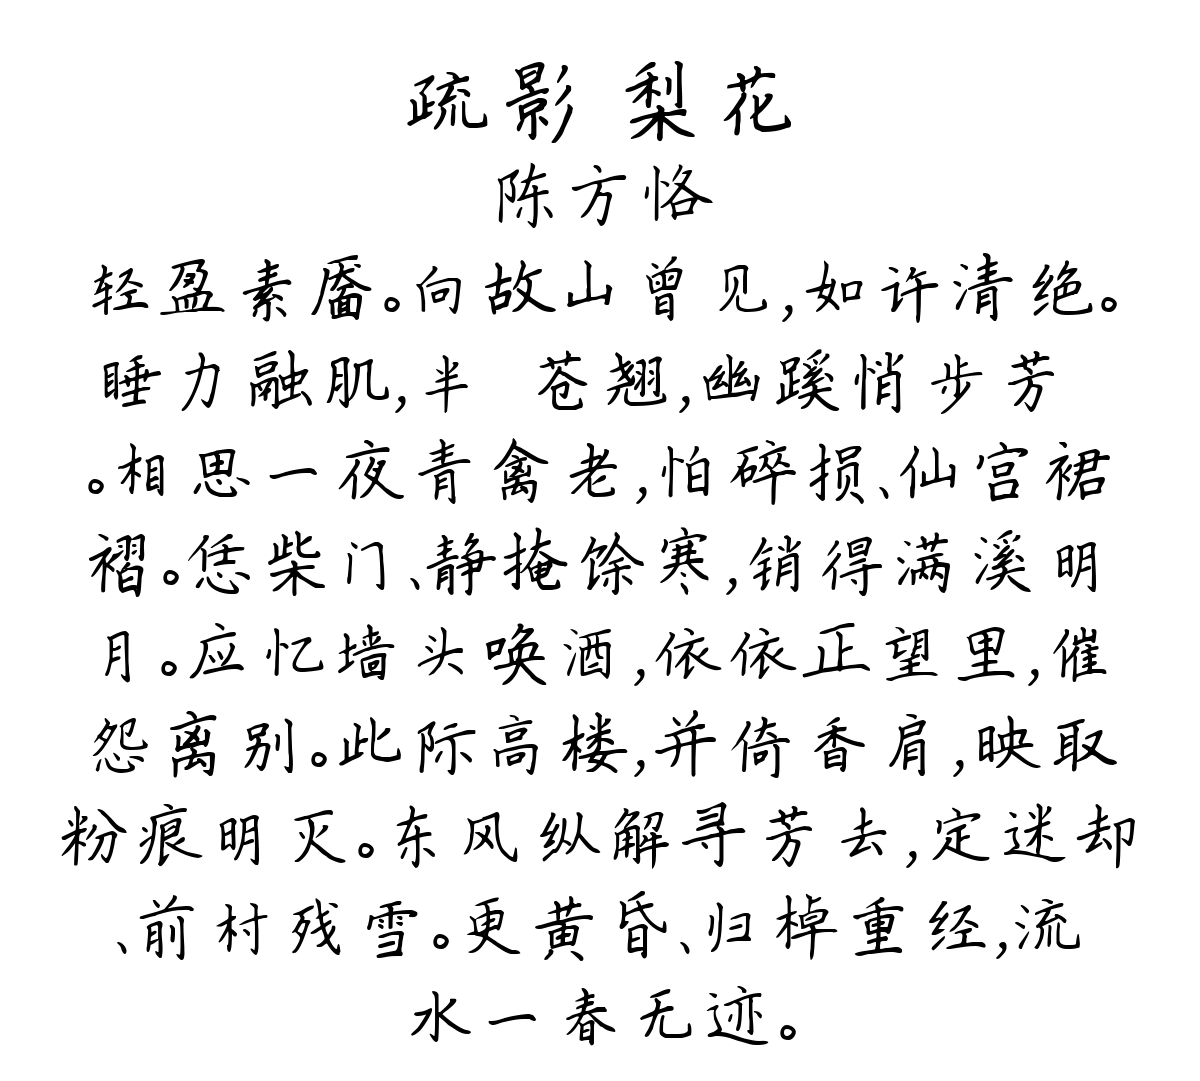 疏影 梨花
陈方恪
轻盈素靥。向故山曾见,如许清绝。
睡力融肌,半 苍翘,幽蹊悄步芳
。相思一夜青禽老,怕碎损、仙宫裙
褶。恁柴门、静掩馀寒,销得满溪明
月。应忆墙头唤酒,依依正望里,催
怨离别。此际高楼,并倚香肩,映取
粉痕明灭。东风纵解寻芳去,定迷却
、前村残雪。更黄昏、归棹重经,流
水一春无迹。